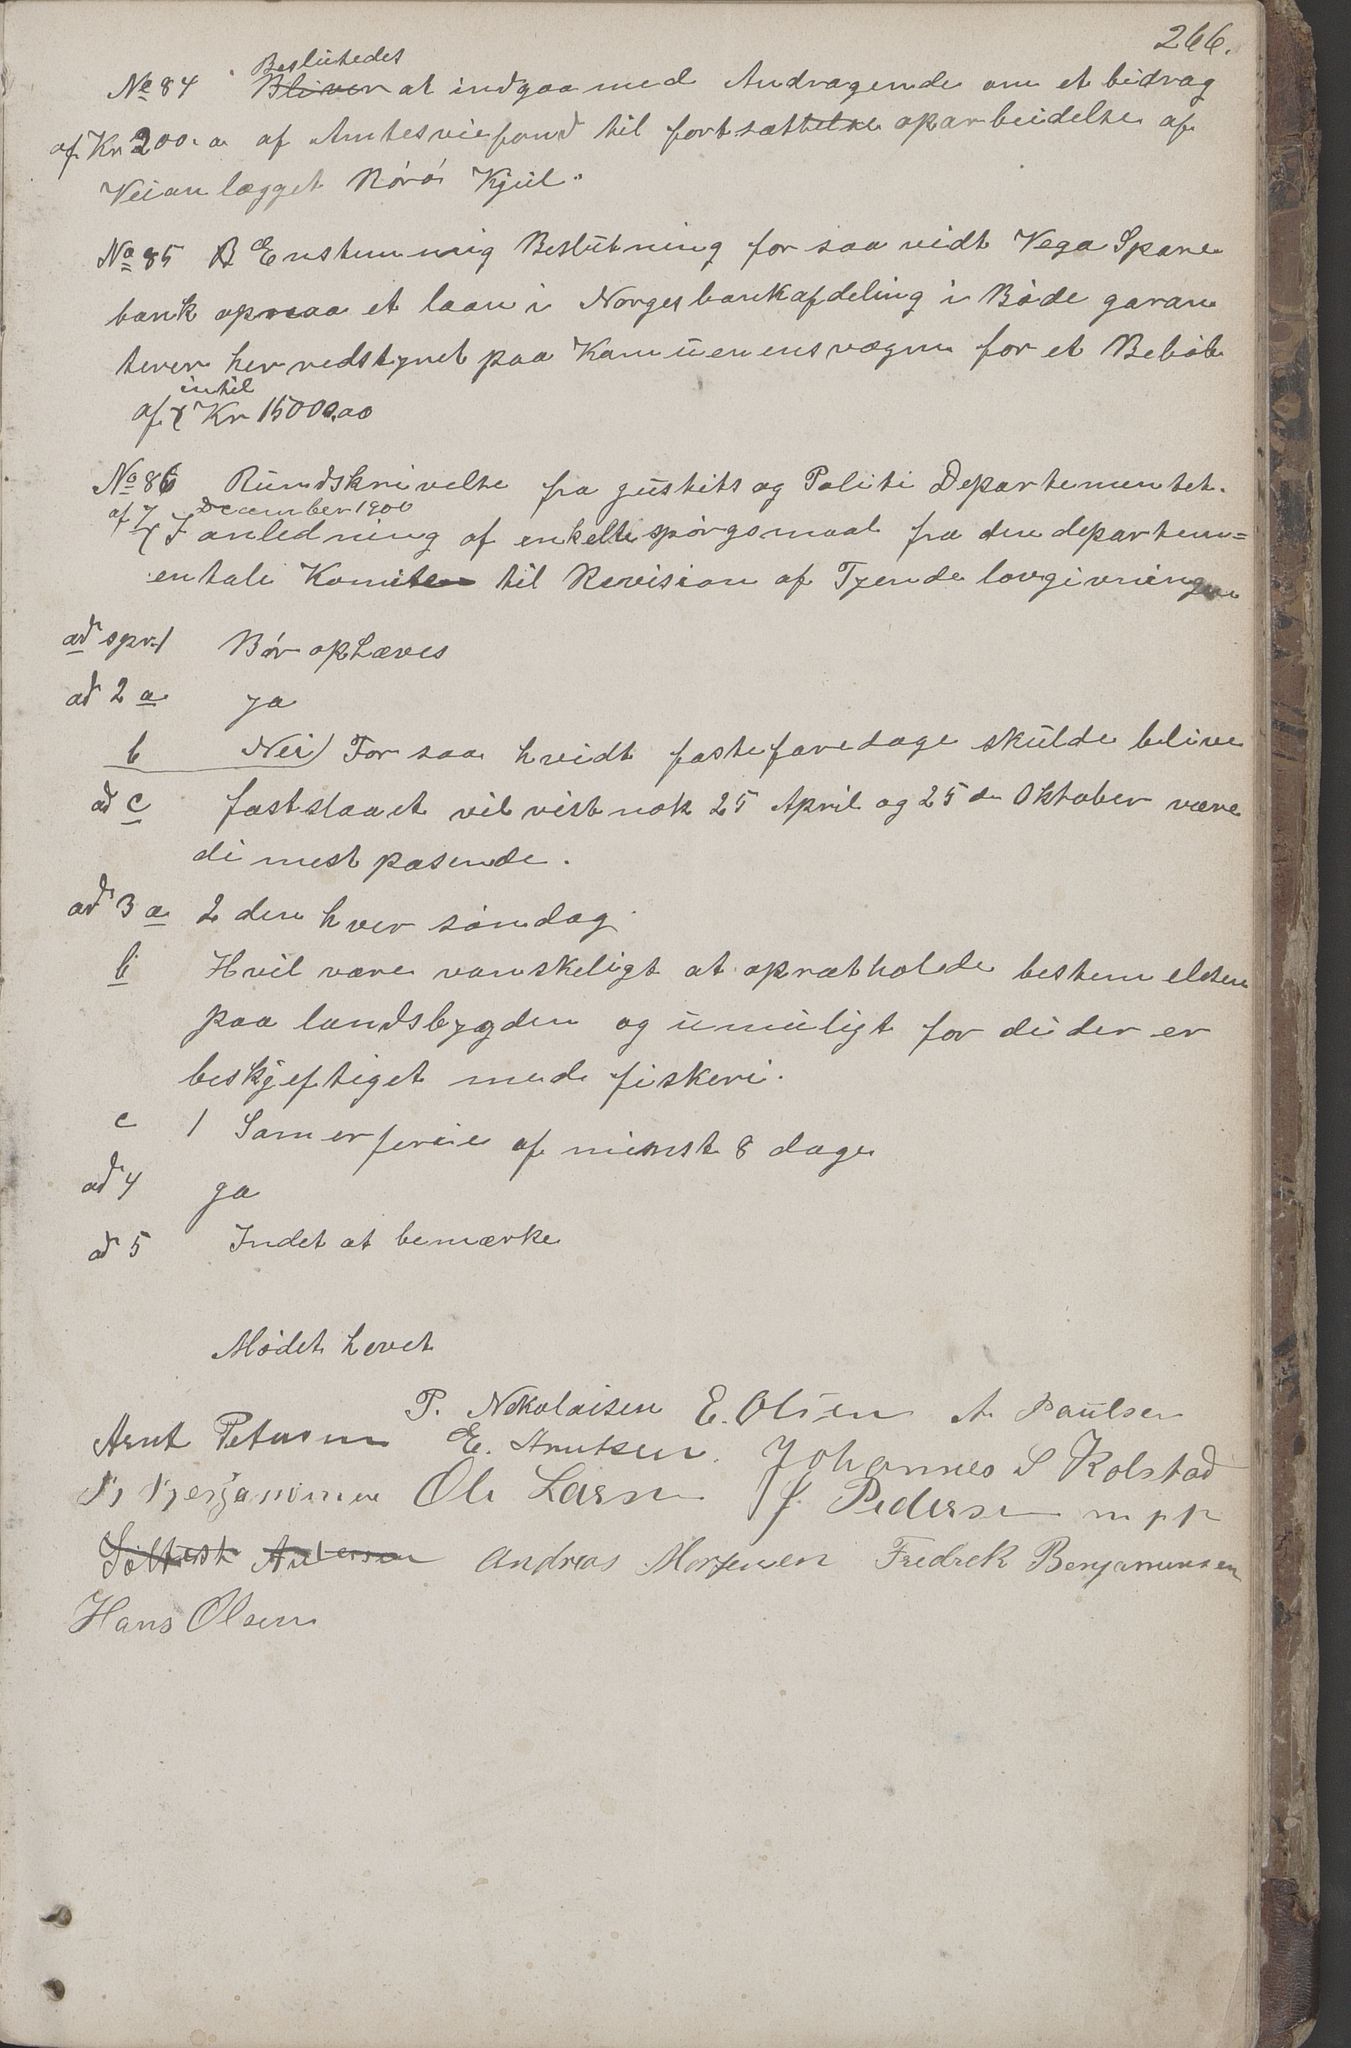 266.
Beslutedes
No 84 Bliver at indgaa med Andragende om et bidrag
af Kr 200.a af Amtesveiefond til fortsættelse oparbeidelse af
Veianlægget Rörö Kjul.
No 85 Enstemmig Beslutning for saa vidt Vega Spare
bank opnaa et laan i Norgesbankafdeling i Bode garan
terer herredstyret paa Kamuenensvægne for et Beløb
intil
af Kr 15000.00
No 86 Rundskrivelse fra justits og Politi Departementet.
af 7/ December 1900
I anledning af enkelte spørgsmaal fra den departem=
entale Komiteen til Revision af Tyende lovgivningen
ad spr. 1 Bør ophæves
ad 2 a ja
b Nei) For saa hvidt faste faredage skulde blive
ad c fastslaaet vil vist nok 25 April og 25 de Oktober være
di mest pasende.
ad 3 a 2 den hver søndag
b Hvil være vanskeligt at opretholde bestemelsen
paa landsbygden og umuligt for di der er
beskjeftiget med fiskeri.
c 1 Samerferie af minst 8 dage
ad 4 ja
ad 5 Indet at bemærke
Mødet hevet
P. Nikolaisen E. Olsen A. Paulsen
Arnt Petersen E. Knutsen. Johannes S Kolstad
Ole Larsen J. Pedersen m p p
Andersen Andreas Mortensen Fredrek Benjaminsen
Hans Olsen